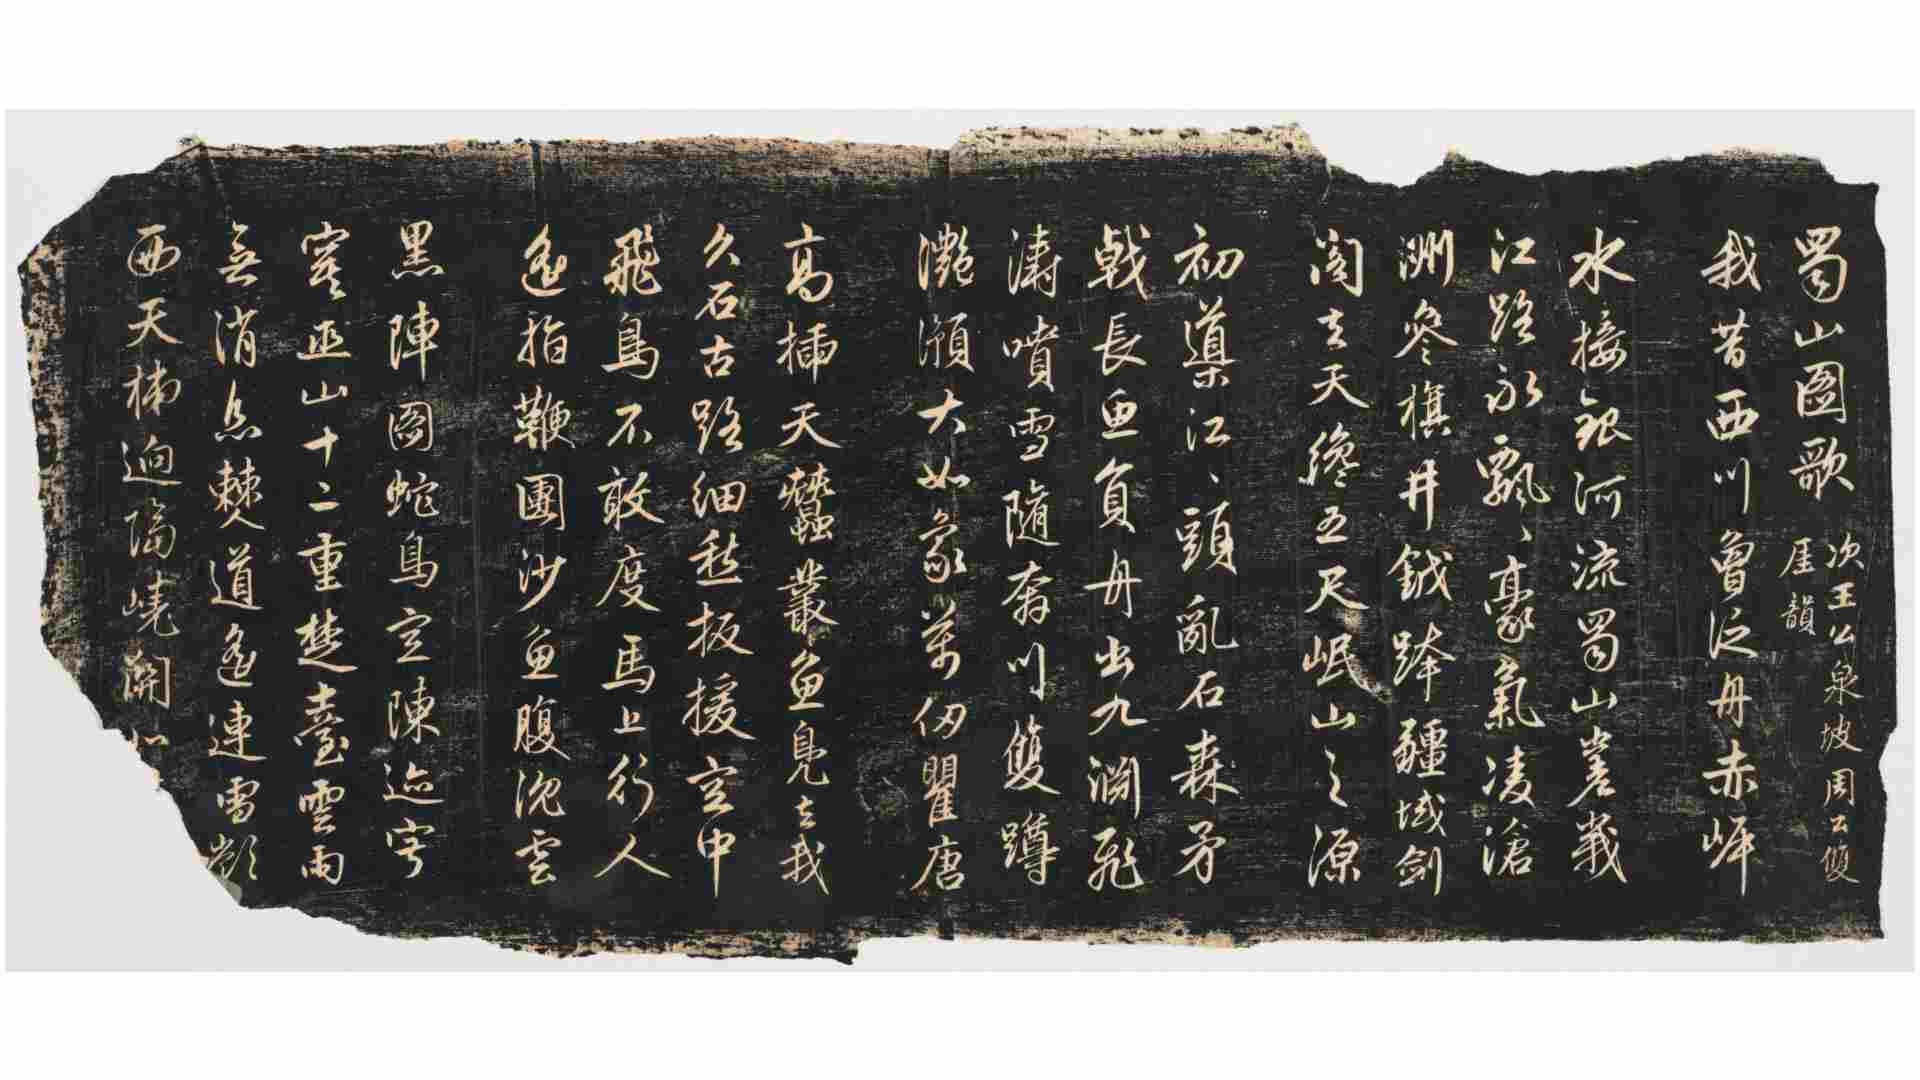 蜀山圖歌
次王公泉坡周公雙
厓韻
我昔西川曾泛舟赤岸
水接銀河流蜀山嵳峩
江路永飄飄豪氣凌滄
洲參旗井鉞踔疆域劍
閣去天纔五尺岷山之源
初導江江頭亂石森矛
戟長魚負舟出九淵飛
濤噴雪隨奔川雙蹲
灧澦大如象萬仞瞿唐
高插天蠶叢魚鳧去我
久石古路細愁扳援空中
飛鳥不敢度馬上行人
遙指鞭團沙魚腹沉雲
黑陣圖蛇鳥空陳迹穹
窿巫山十二重楚臺雲雨
無消息僰道遙連雪嶺
西天梯迥隔嶢關